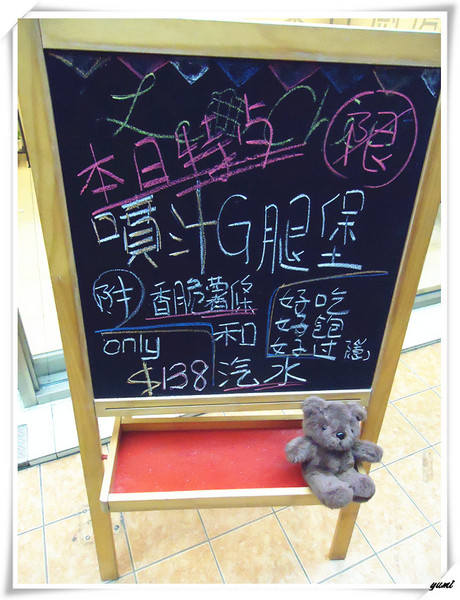 本日特点 限
噴汁G腿堡
附 香脆薯條
和
汽水
only
$138
好吃
好飽
好过癮
yumi